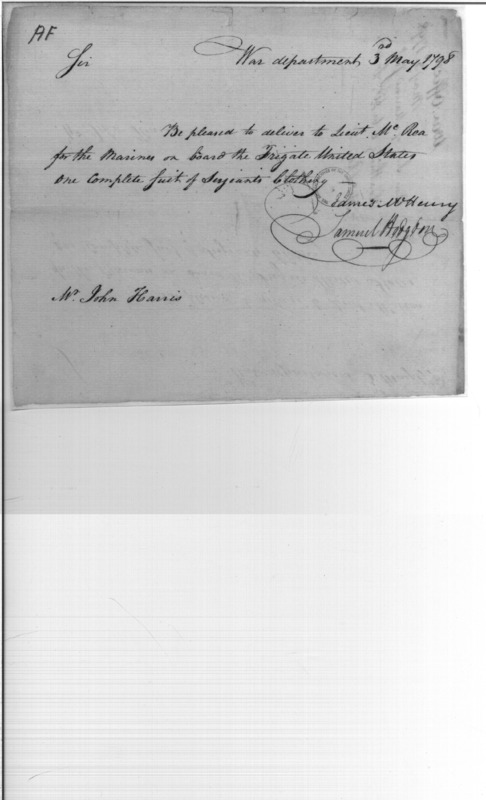 AF
War department 3rd May 1798
Sir
Be pleased to deliver to Lieut. Mc. Rea
for the Marines on board the Frigate United States
One Complete Suit of Sergeants Clothing
James McHenry
Samuel Hodgdon
Mr. John Harris